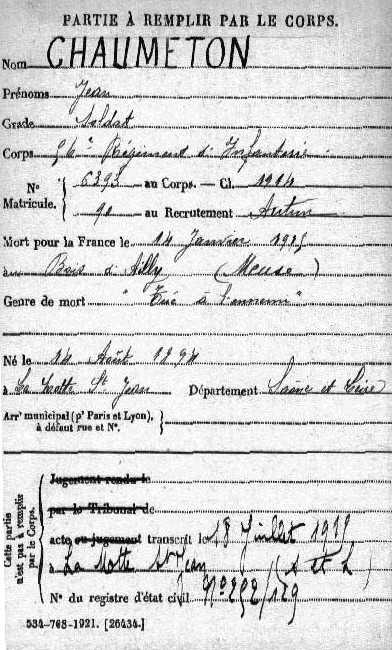 PARTIE À REMPLIR PAR LE CORPS.
Nom CHAUMETON
Prénoms Jean
Grade Soldat
Corps 56e Régiment d'Infanterie
N° Matricule. { 6393 au Corps. — Cl. 1914
90 au Recrutement Autun
Mort pour la France le 14 Janvier 1915
au Bois d'Ailly (Meuse)
Genre de mort "Tué à l'ennemi"
Né le 14 Août 1894
à La Motte St Jean Département Saône et Loire
Arrt municipal (pr Paris et Lyon), à défaut rue et N°.
Cette partie n'est pas à remplir par le Corps.
Jugement rendu le
par le Tribunal de
acte ou jugement transcrit le 18 Juillet 1915
à La Motte St Jean (S et L)
N° du registre d'état civil N° 292/129
534-708-1921. [26434.]